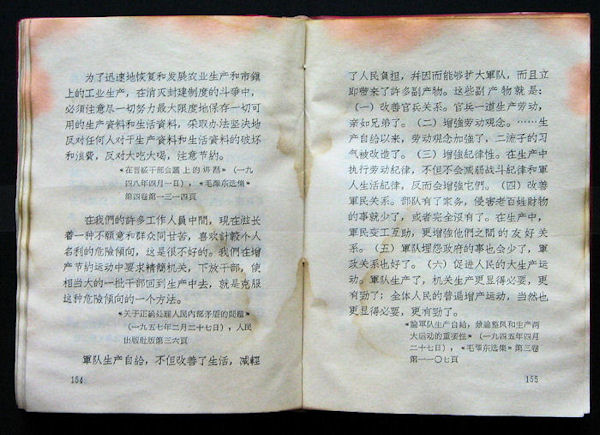 为了迅速地恢复和发展农业生产和市鎮
上的工业生产，在消灭封建制度的斗爭中，
必須注意尽一切努力最大限度地保存一切可
用的生产資料和生活資料，采取办法坚决地
反对任何人对于生产資料和生活資料的破坏
和浪費，反对大吃大喝，注意节約。
*在晋綏干部会議上的讲話*（一九
四八年四月一日），*毛澤东选集*
第四卷第一三一四頁
在我們的許多工作人員中間，現在滋长
着一种不願意和群众同甘苦，喜欢計較个人
名利的危險傾向，这是很不好的。我們在增
产节約运动中要求精簡机关，下放干部，使
相当大的一批干部回到生产中去，就是克服
这种危險傾向的一个方法。
*关于正确处理人民內部矛盾的問題*
（一九五七年二月二十七日），人民
出版社版第三六頁
軍队生产自給，不但改善了生活，减輕
154
了人民負担，幷因而能够扩大軍队，而且立
即带来了許多副产物。这些副产物就是：
（一）改善官兵关系。官兵一道生产劳动，
亲如兄弟了。（二）增強劳动观念。……生
产自給以来，劳动观念加強了，二流子的习
气被改造了。（三）增強紀律性。在生产中
执行劳动紀律，不但不会减弱战斗紀律和軍
人生活紀律，反而会增強它們。（四）改善
軍民关系。部队有了家务，侵害老百姓財物
的事就少了，或者完全沒有了。在生产中，
軍民变工互助，更增強他們之間的友好关
系。（五）軍队埋怨政府的事也会少了，軍
政关系也好了。（六）促进人民的大生产运
动。軍队生产了，机关生产更显得必要，更
有劲了；全体人民的普遍增产运动，当然也
更显得必要，更有劲了。
*論軍队生产自給，兼論整风和生产两
大运动的重要性*（一九四五年四月
二十七日），*毛澤东选集*第三卷
第一一〇七頁
155